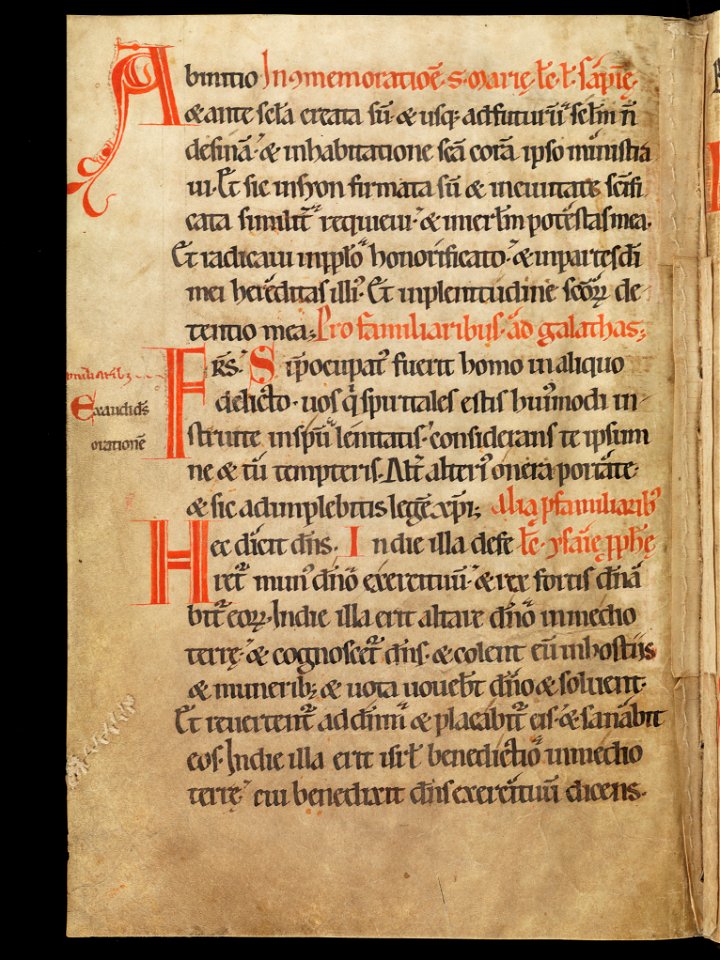 Ab initio In 9memoratiōe · s · marię · łe · ł · sāpię ·
& ante sc̄la creata sū & usq; ad futurū sc̄lm n̄
desinā · & in habitatione sc̄a corā ipso ministra
ui · Et sic in syon firmata sū & in ciuitate sc̄ifi
cata similit̄ requieui · & in ierłm potestas mea ·
Et radicaui in pp̄lo honorificato · & in partes d̄i
mei hereditas illi᾽ · Et in plenitudine sc̄oꝝ de
tentio mea; Pro familiaribus · ad galathas;
Fr̄s · Si p̄ocupat᾽ fuerit homo in aliquo
delicto · uos q̄ spiritales estis hui᾽modi in
struite in sp̄u lenitatis · considerans te ipsum
ne & tū tempteris · Alt̄ alteri᾽ onera portate ·
& sic adimplebitis legē xp̄i; Alia p familiarib᾽
Hec dicit dn̄s · In die illa desc łe · ysaię pph̄ę
iret̄ mun᾽ dn̄o exercituū · & rex fortis dn̄a
bit̄ eoꝝ · In die illa erit altare dn̄o in medio
terrę · & cognoscet̄ dn̄s · & colent eū in hostiis
& munerib; & uota uouebt̄ dn̄o & soluent ·
Et reuertent̄ ad dn̄m & placabit̄ eis · & sanabit
eos · In die illa erit isrł benedictio in medio
terrę · cui benedixit dn̄s exercituū dicens ·
Exaudi d̄s
orationē